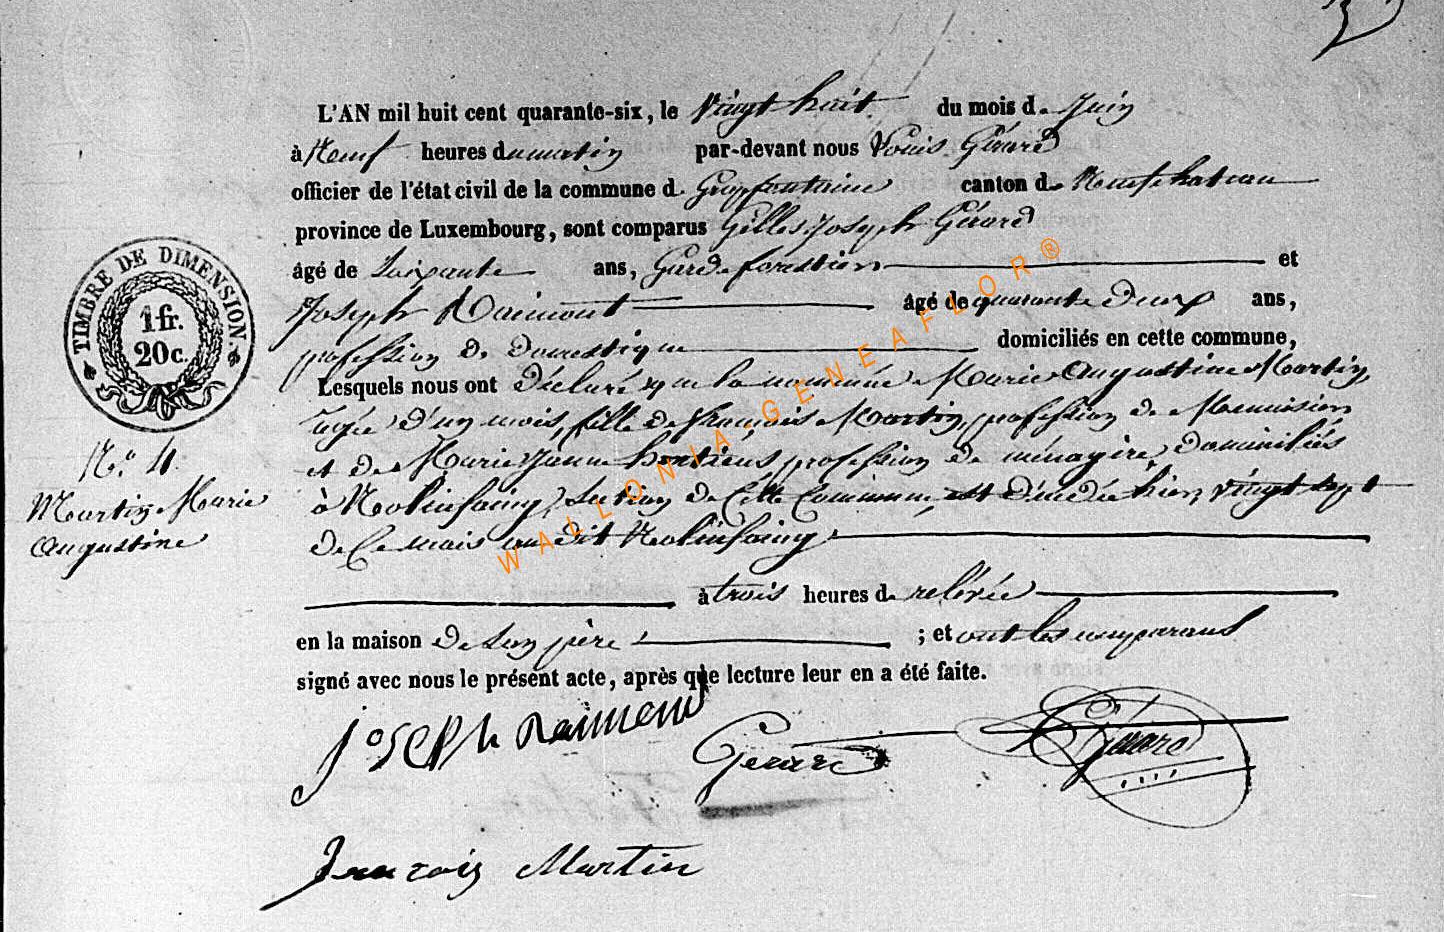 L'AN mil huit cent quarante-six, le Vingt huit du mois de Juin
à Neuf heures du matin par-devant nous Louis Gérard
officier de l'état civil de la commune de Grapfontaine canton de Neufchateau
province de Luxembourg, sont comparus Gilles Joseph Gérard
âgé de Soixante ans, Garde forestier et
Joseph Raimont âgé de quarante deux ans,
profession de domestique domiciliés en cette commune,
Lesquels nous ont déclaré que la nommée Marie Augustine Martin,
agée d'un mois, fille de François Martin, profession de Menuisier
et de Marie Jeanne profession de ménagère, domiciliés
à Molinfaing, Section de Cette Commune, est décédée hier, vingt sept
de Ce mois au dit Molinfaing,
à trois heures de relévée
en la maison de son père ; et ont les comparans
signé avec nous le présent acte, après que lecture leur en a été faite.
TIMBRE DE DIMENSION.
1 fr.
20 c.
No. 4.
Martin Marie
Augustine
Joseph Raimont
Gerard
Gerard
François Martin
WALLONIA-GENEAFLOR®